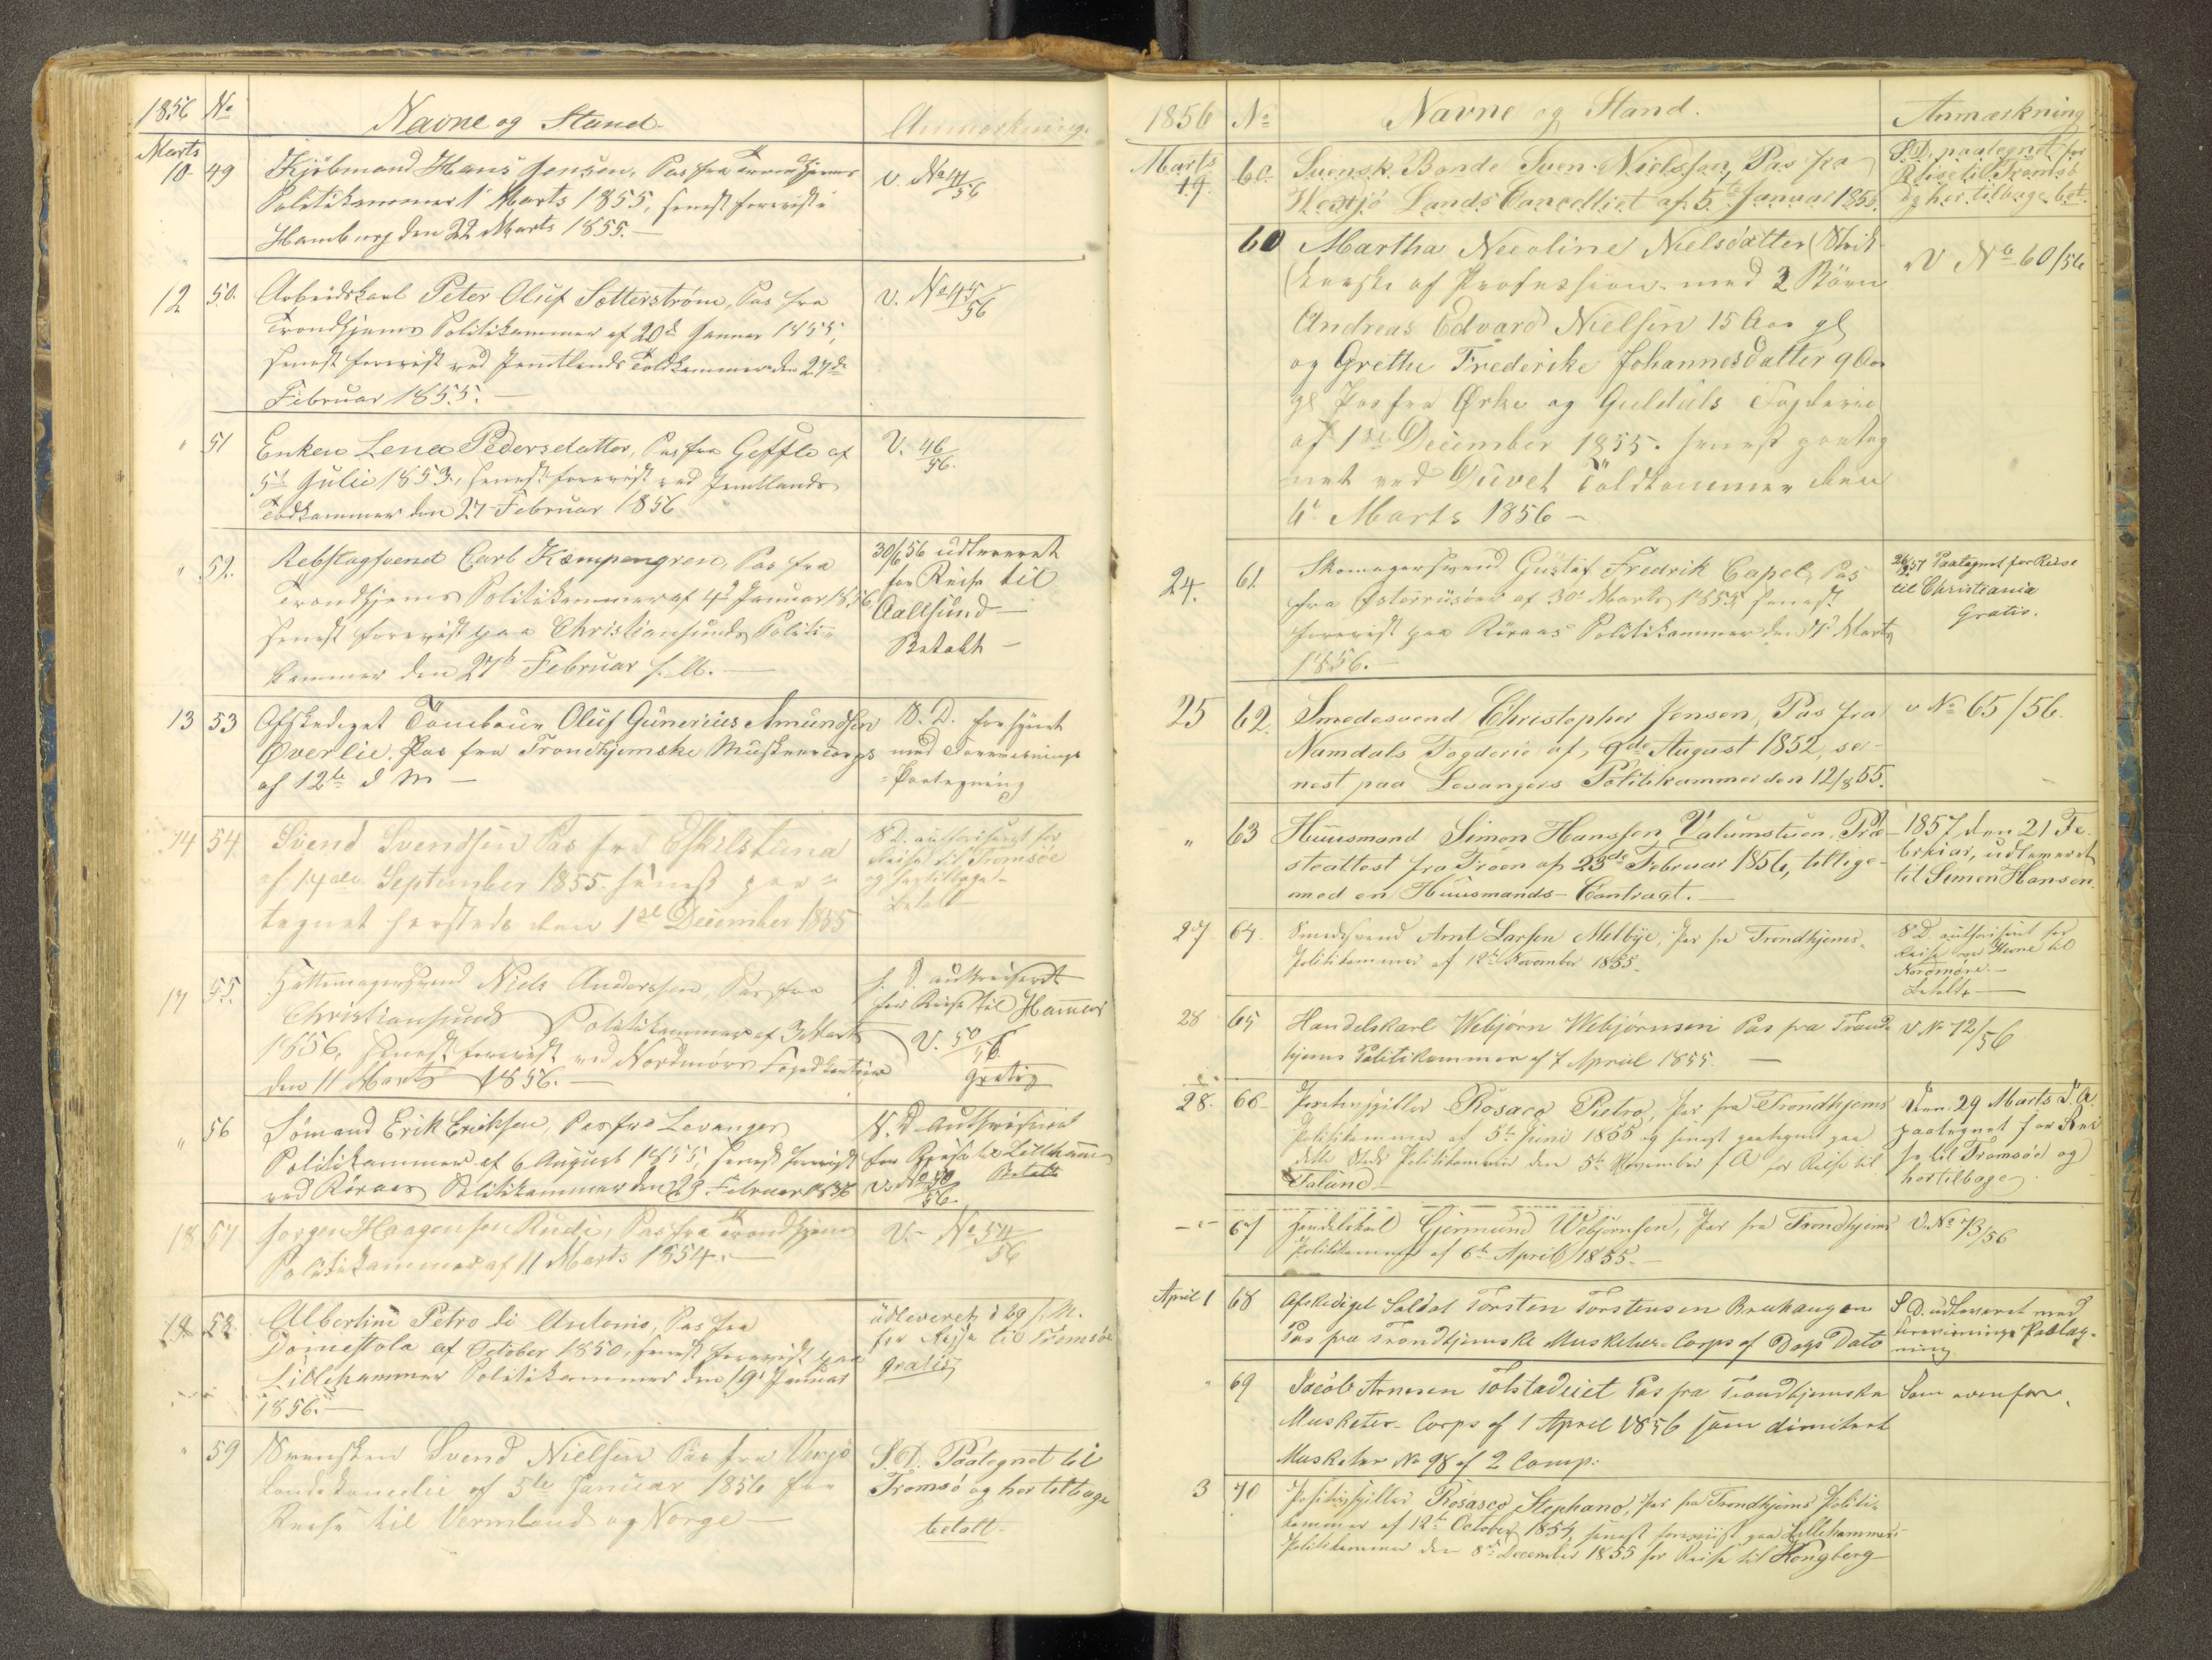 1856 No Navne og Stand Anmærkning
Marts
10 49 Kjöbmand Hans Jensen, Pas fra Trondhjems v. No 41/56
Politikammer 1 Marts 1855, senest forevist i
Hamburg den 22 Marts 1855.
12 50 Arbeidskarl Peter Oluf Sætterstrøm, Pas fra v. No 45/56
Trondhjems Politikammer af 20de Januar 1855,
senest forevist ved Jemtlands Toldkammer den 27de
Februar 1855.
" 51 Enken Lena Pedersdatter, Pas fra Geffle af V. 46/56.
5te Julie 1853, senest forevist ved Jemtlands
Toldkammer den 27 Februar 1856
" 52. Rebslagsvend Carl Kæmpengren, Pas fra 30/6 56 udleveret
Trondhjems Politikammer af 4de Januar 1856, for Reise til
senest forevist paa Christiansunds Politi- Aalesund
kammer den 27de Februar s. A. Betalt
13 53 Afskediget Tambour Oluf Gunerius Amundsen S. D. forsynet
Øverlie. Pas fra Trondhjemske Musketeercorps med Foreviisnings
af 12te d M - Paategning
14 54 Svend Svendsen Pas fra Eskilstuna S. D. authoriseret for
af 14de September 1855. senest paa- Reise til Tromsøe
tegnet hersteds den 1ste December 1855 og hertilbage
betalt
17 55. Hattemagersvend Niels Anderssen, Pas fra S. D. authoriseret
Christiansunds Politikammer af 3 Marts for Reise til Hamar
1856, senest forevist ved Nordmörs Fogedkontoir V. 50/56
den 11 Marts 1856. gratis
" 56 Sömand Erik Eriksen, Pas fra Levanger S. D. Authoriseret
Politikammer af 6 August 1855, senest forevist for Reise til Lillehammer
ved Röraas Politikammer den 29 Februar 1856 v. No 50/56 Betalt
18 57 Jorgen Haagensen Rude, Pas fra Trondhjems V. - No 54/56
Politikammer af 11 Marts 1854.
19 58. Albertini Petro di Antonio, Pas fra udleveret d 29 s. M.
Domestola af October 1850, senest forevist paa for Reise til Tromsøe
Lillehammer Politikammer den 19 Januar gratis
1856.
" 59 Svensken Svend Nielsen Pas fra Vexjö S. D. Paategnet til
Landskancelie af 5te Januar 1856 for Tromsö og her tilbage
Reise til Vermland og Norge betalt.
1856 No Navne og Stand. Anmærkning
Marts 60. Svensk Bonde Sven Nielssen, Pas fra S. D. paategnet for
19. Wexjö Lands Cancelliet af 5te Januar 1856. Reise til Tromsö
og her tilbage bet.
60 Martha Nicoline Nielsdatter (Strik- V No 60/56
kerske af Profession med 2 Börn
Andreas Edvard Nielsen 15 Aar gl
og Grethe Frederike Johannesdatter 9 Aar
gl Pas fra Ørke og Guldals Fogderie
af 1ste December 1855. senest paateg
net ved Duved Toldkammer den
6. Marts 1856 -
24. 61 Skomagersvend Gustaf Fredrik Capel, Pas 26/2 57 Paategnet for Reise
fra Østerriisöer af 30 Marts 1855 senest til Christiania
forevist paa Röraas Politikammer den Marts Gratis.
1856.
25 62. Smedesvend Christopher Jensen, Pas fra v No 65/56.
Namdals Fogderie af, 9de August 1852, se-
nest paa Levangers Politikammer den 12/8 55.
" 63 Huusmand Simon Hanssen Valumstuen. Præ- 1857 den 21 Fe-
steattest fra Froen af 23de Februar 1856, tillige- bruar, udleveret
med en Huusmands-Contract. til Simon Hansen.
27 64. Smedsvend Arnt Larsen Melbye, Pas fra Trondhjems S D authoriseret for
Politikammer af 12te November 1855. Reise over Hevne til
Nordmøre.
betalt
28 65 Handelskarl Webjørn Webjørnsen Pas fra Trond- V No 72/56
hjems Politikammer af 7 April 1855.
28. 66 Rosaco Pietro, Pas fra Trondhjems Den 29 Marts d. A.
Politikammer af 5te Juni 1855 og senest paategnet paa paategnet for Rei
dette Steds Politikammer den 5te November f A for Reise til se til Tromsöe og
Falund hertilbage
- " - 67 Handelskarl Gjermund Webjørnsen, Pas fra Trondhjems V. No 73/56
Politikammer af 6te April 1855.
April 1 68 Afskediget Soldat Torsten Torstensen Bruhaugen S D. udleveret med
Pas fra Trondhjemske Musketeer-Corps af Dags Dato Foreviisnings Pateg-
ning
" 69 Jacob Arnesen Tolstadeiet Pas fra Trondhjemske Som ovenfor
Musketer-Corps af 1 April 1856 som dimitert
Musketer No 98 af 2 Comp:
3 70 Positivspiller Rosasco Stephano, Pas fra Trondhjems Politi-
kammer af 12te October 1854, senest foreviist paa Lillehammers
Politikammer den 8de December 1855 for Reise til Kongberg